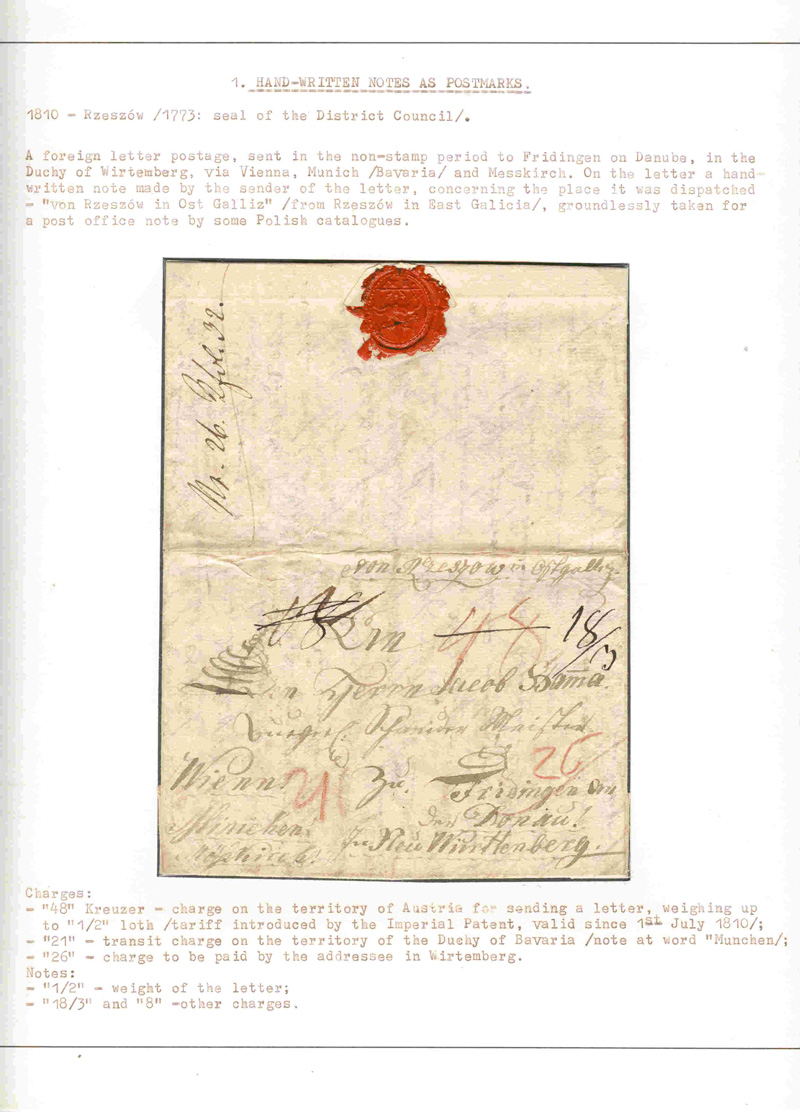 1. HAND-WRITTEN NOTES AS POSTMARKS.
1810 - Rzeszów /1773: seal of the District Council/.
A foreign letter postage, sent in the non-stamp period to Fridingen on Danube, in the
Duchy of Wirtemberg, via Vienna, Munich /Bavaria/ and Messkirch. On the letter a hand-
written note made by the sender of the letter, concerning the place it was dispatched
- "von Rzeszów in Ost Galliz" /from Rzeszów in East Galicia/, groundlessly taken for
a post office note by some Polish catalogues.
Nr. 26. 32.
von Rzeszow in Ostgalliz.
48 18/3
Herrn Jacob
Meister
Wienn! 21 Zu Fridingen an 26
München! der Donau!
Möskirch! In Neu Württenberg.
Charges:
- "48" Kreuzer - charge on the territory of Austria for sending a letter, weighing up
to "1/2" loth /tariff introduced by the Imperial Patent, valid since 1st July 1810/;
- "21" - transit charge on the territory of the Duchy of Bavaria /note at word "Munchen/;
- "26" - charge to be paid by the addressee in Wirtemberg.
Notes:
- "1/2" - weight of the letter;
- "18/3" and "8" -other charges.